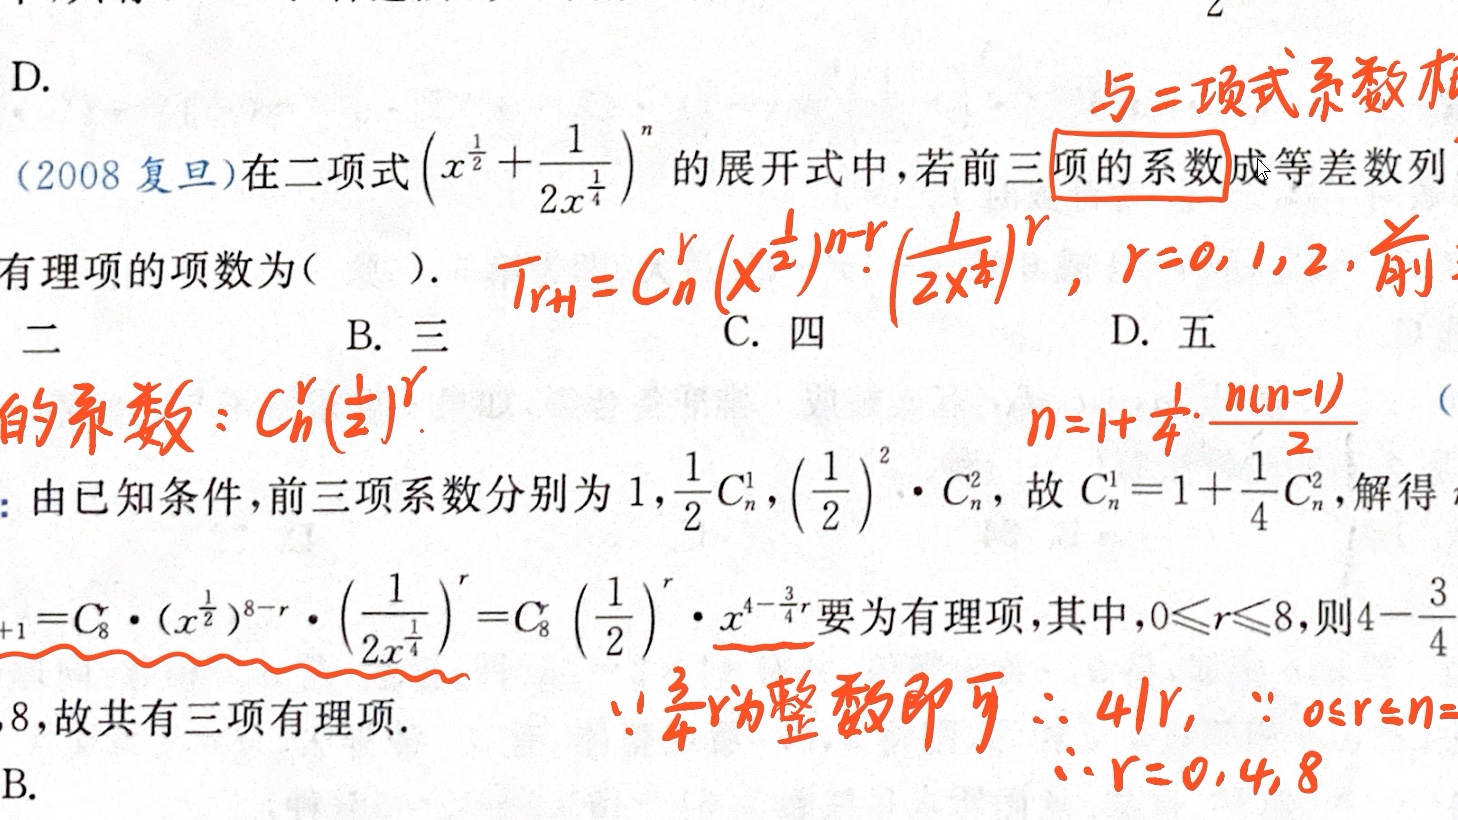 2
D.
与二项式系数
(2008 复旦)在二项式(x^{\frac{1}{2}}+\frac{1}{2x^{\frac{1}{4}}})^n 的展开式中,若前三项的系数成等差数列
有理项的项数为(    ).
T_{r+1}=C_n^r(x^{\frac{1}{2}})^{n-r}·(\frac{1}{2x^{\frac{1}{4}}})^r, r=0,1,2,前
二    B. 三    C. 四    D. 五
的系数:C_n^r(\frac{1}{2})^r.
n=1+\frac{1}{4}·\frac{n(n-1)}{2}
:由已知条件,前三项系数分别为 1,\frac{1}{2}C_n^1,(\frac{1}{2})^2·C_n^2,故 C_n^1=1+\frac{1}{4}C_n^2,解得
_{+1}=C_8^r·(x^{\frac{1}{2}})^{8-r}·(\frac{1}{2x^{\frac{1}{4}}})^r=C_8^r(\frac{1}{2})^r·x^{4-\frac{3}{4}r}要为有理项,其中,0≤r≤8,则4-\frac{3}{4}
∵\frac{3}{4}r为整数即可 ∴4|r, ∵0≤r≤n=
,8,故共有三项有理项.
∴r=0,4,8
B.